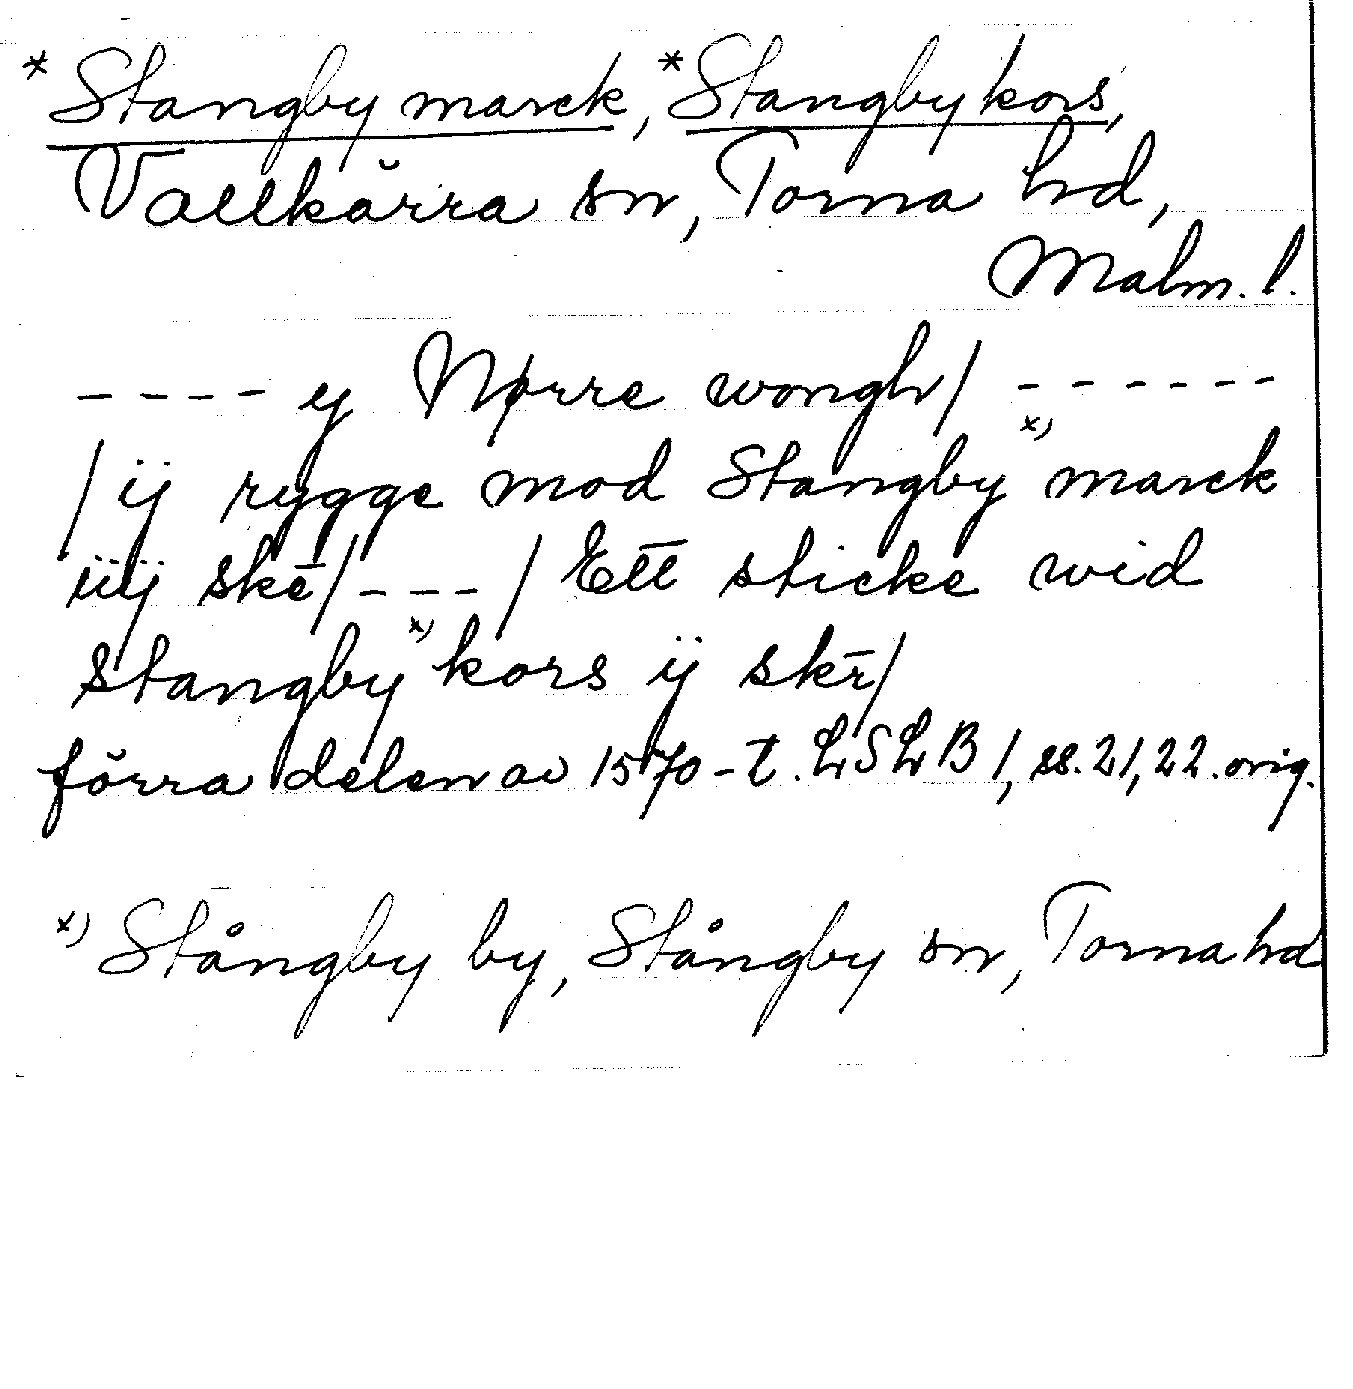 *Stangby marck, *Stangby kors,
Vallkärra sn, Torna hd,
Malm. l.
---- y Nørre wongh/ ------
/ ij rygge mod Stangby x) marck
iiij skē/ --- / Ett sticke wid
Stangby x) kors ij skr̄/
förra delen av 1570-t. LSLB 1, ss. 21, 22. orig.
x) Stångby by, Stångby sn, Torna hd